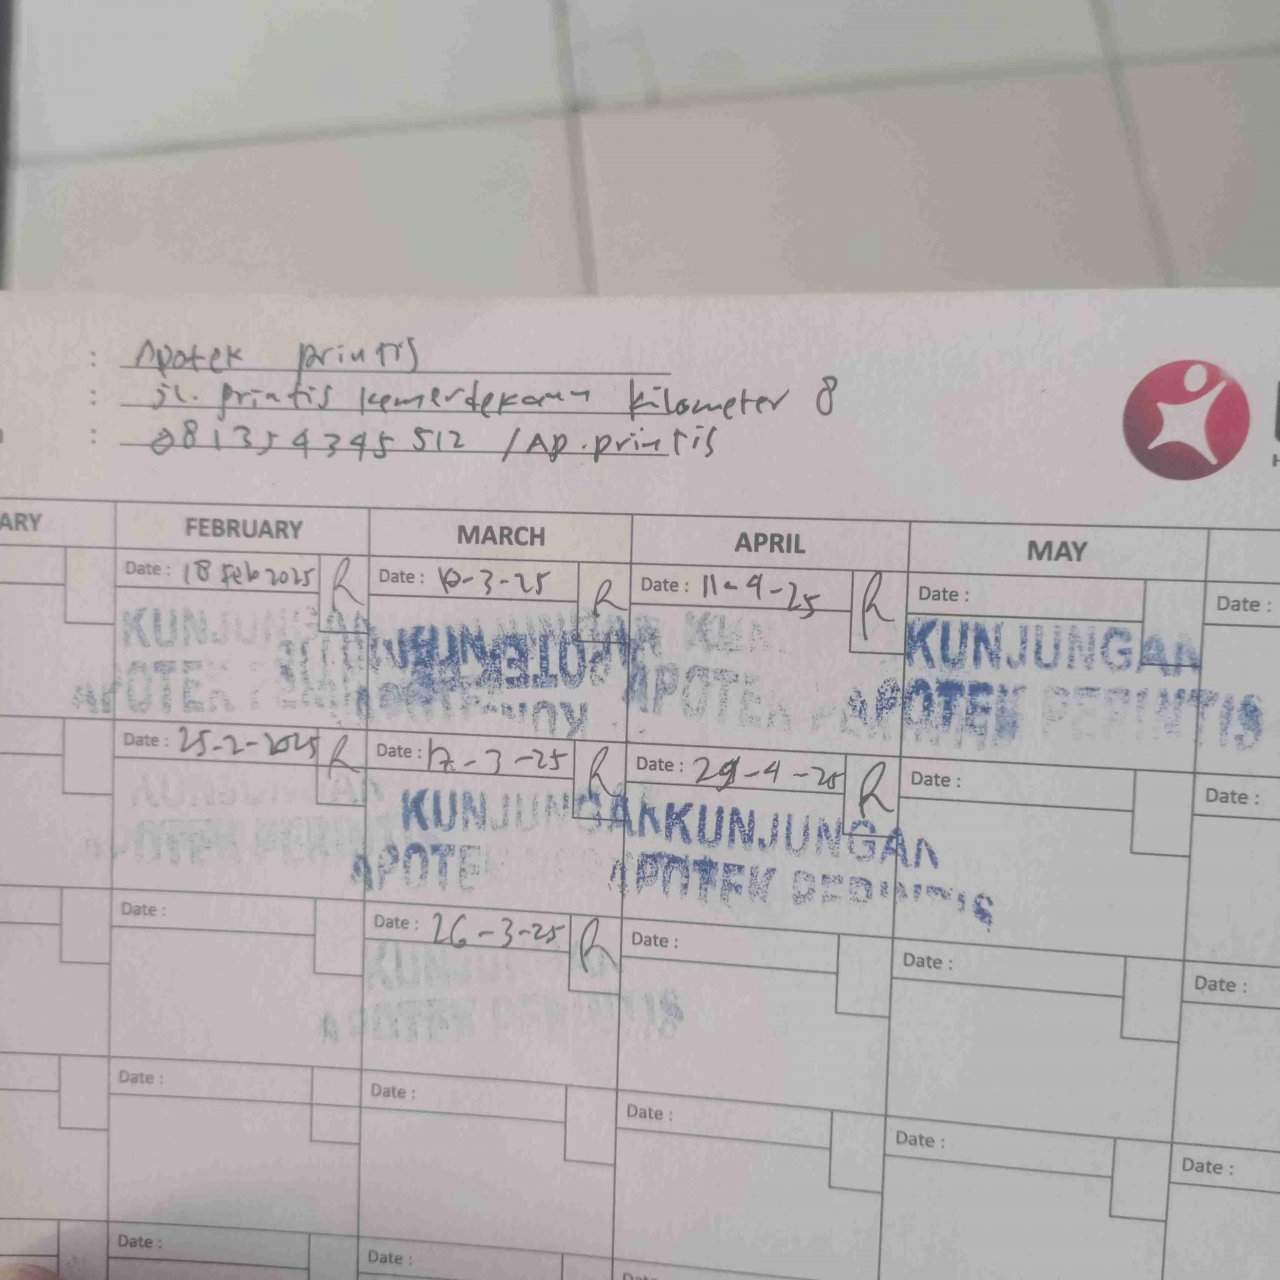 : Apotek printis
: jl. printis kemerdekaan kilometer 8
: 081354345512 / Ap. printis
ARY FEBRUARY MARCH APRIL MAY
Date : 18 Feb 2025 R Date : 10-3-25 R Date : 11-4-25 R Date : Date :
KUNJUNGAN KUNJUNGAN
APOTEK APOTEK APOTEK APOTEK PERINTIS
Date : 25-2-2025 R Date : 17-3-25 R Date : 29-4-25 R Date : Date :
KUNJUNGAN KUNJUNGAN
APOTE APOTEK PERINTIS
Date : Date : 26-3-25 R Date : Date : Date :
APOTEK PERINTIS
Date : Date : Date : Date : Date :
Date : Date :